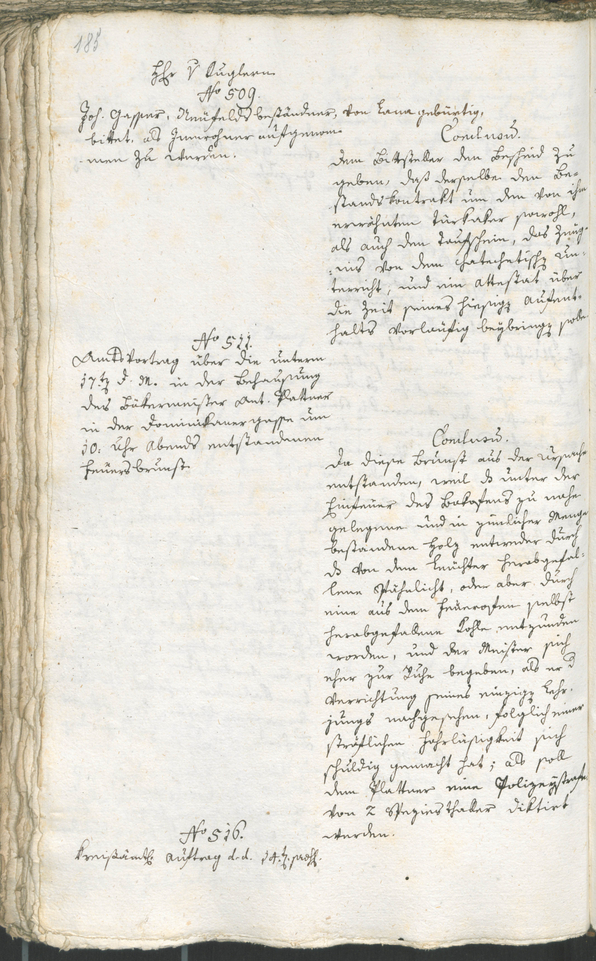 185
Hr. v. Kuglern
No 509.
Joh. Gasser, Neufeldsbeständner, von Lana gebürtig,
bittet, als Innwohner aufgenom-
men zu werden.
Conclusum.
dem Bittsteller den Bescheid zu
geben, daß derselbe den Be-
standskontrakt um den von ihm
erwähnten Türkaker sowohl,
als auch den Taufschein, das Zeug-
nis von dem katechetischen Un-
terricht, und ein Attestat über
die Zeit seines hiesigen Aufent-
halts vorläufig beybringen solle
No 511.
Amtsvortrag über die unterm
17ten d. M. in der Behausung
des Bäkermeister Ant. Plattner
in der Dominikanergasse um
10. Uhr Abends entstandenen
Feuersbrunst
Conclusum.
Da diese Brunst aus der Ursache
entstanden, weil das unter der
Einfeuer des Bakofens zu nahe
gelegene und in zimlicher Menge
bestandene Holz entweder durch
das von dem Leuchter herabgefal-
lene Spähnlicht, oder aber durch
eine aus dem Feuerofen selbst
herabgefallene Kohle entzunden
worden, und der Meister sich
eher zur Ruhe begeben, als er der
Verrichtung seines einzigen Lehr-
jungs nachgesehen, folglich einer
sträflichen Fahrlässigkeit sich
schuldig gemacht hat; als soll
dem Plattner eine Polizeystrafe
von 2 Speziesthaler diktirt
werden.
No 516.
Kreisämtl. Auftrag d.d. 14ten